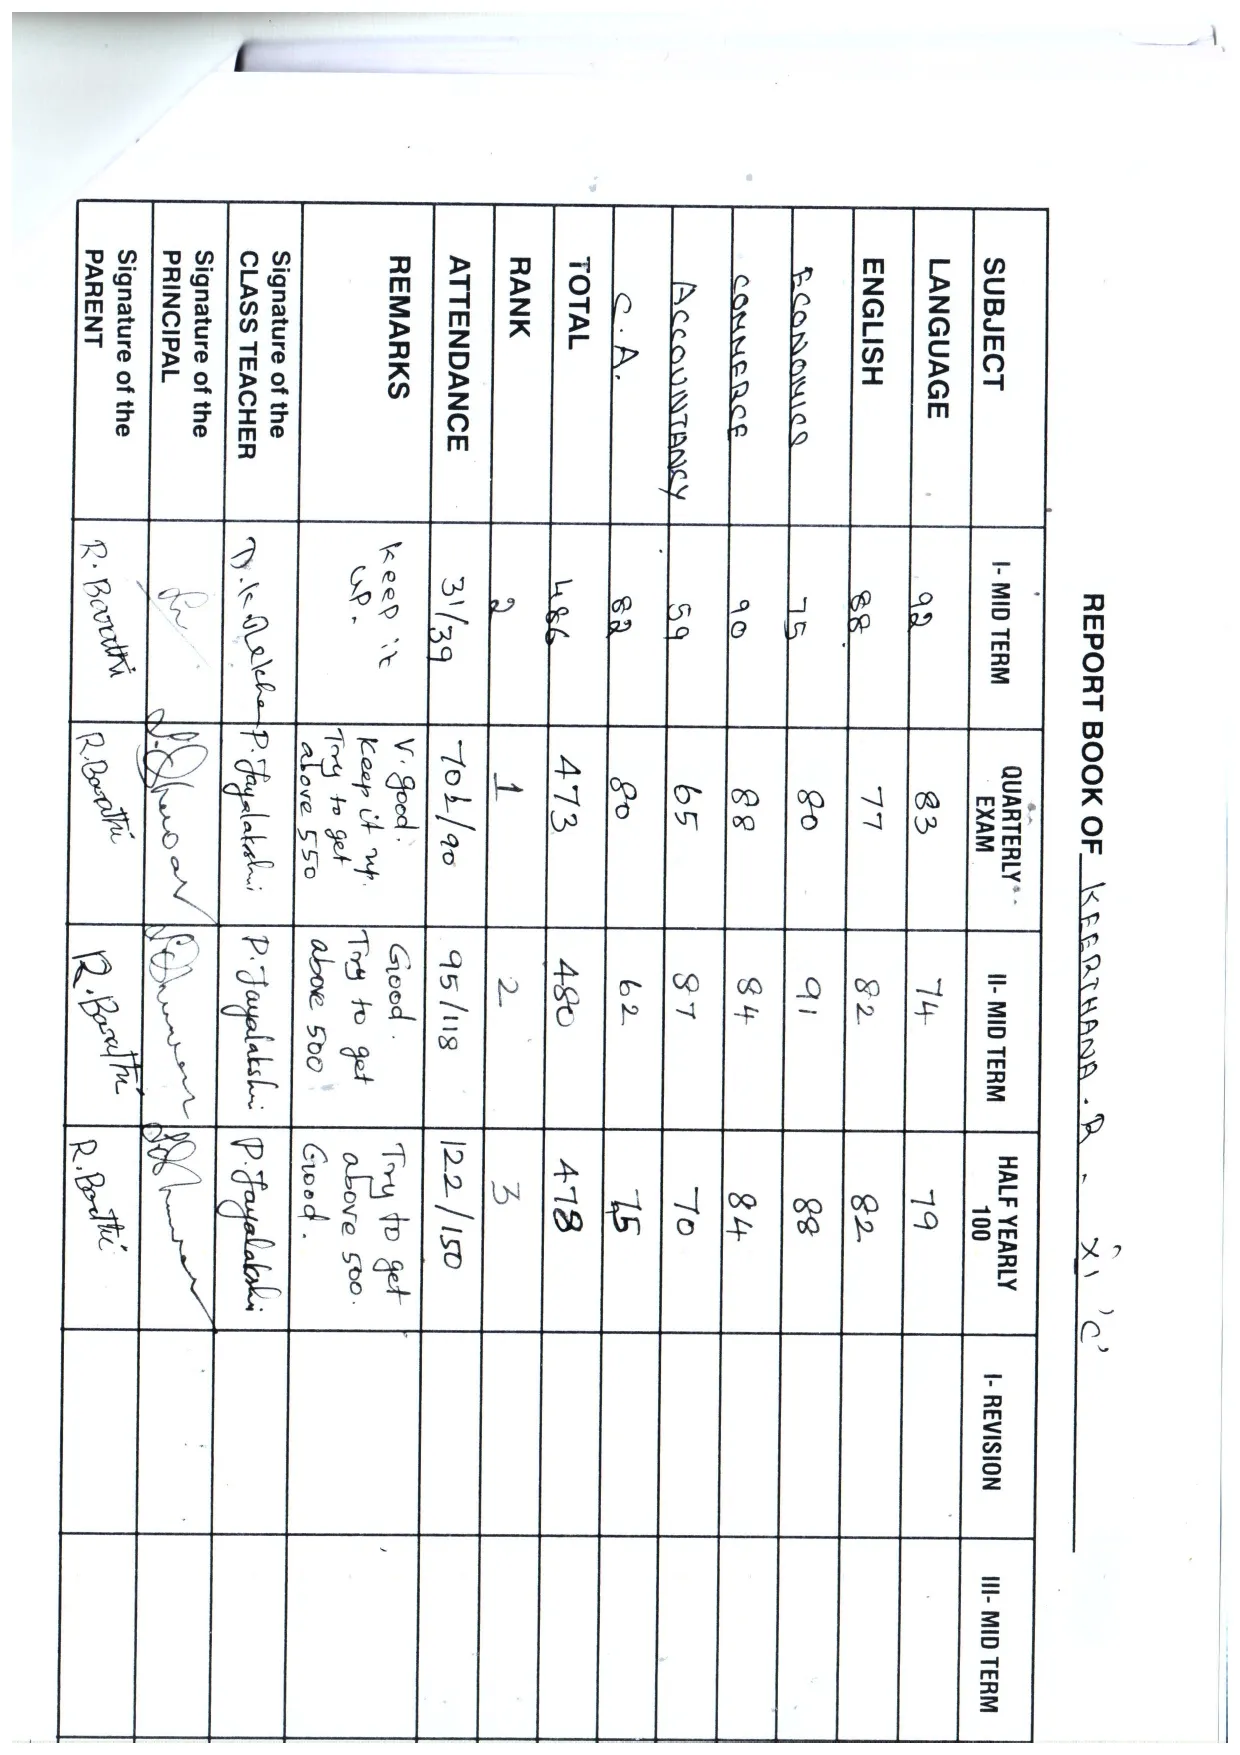 REPORT BOOK OF KEERTHANA . R , XI 'C'
SUBJECT I- MID TERM QUARTERLY EXAM II- MID TERM HALF YEARLY 100 I- REVISION III- MID TERM
LANGUAGE 92 83 74 79
ENGLISH 88 77 82 82
ECONOMICS 75 80 91 88
COMMERCE 90 88 84 84
ACCOUNTANCY 59 65 87 70
C.A. 82 80 62 75
TOTAL 486 473 480 478
RANK 2 1 2 3
ATTENDANCE 31/39 /90 95/118 122/150
REMARKS
keep it
up.
V. good.
keep it up.
Try to get
above 550
Good.
Try to get
above 500
Try to get
above 500.
Good.
Signature of the
CLASS TEACHER
P. Jayalakshmi P. Jayalakshmi P. Jayalakshmi
Signature of the
PRINCIPAL
Signature of the
PARENT
R. Barathi R. Barathi R. Barathi R. Barathi